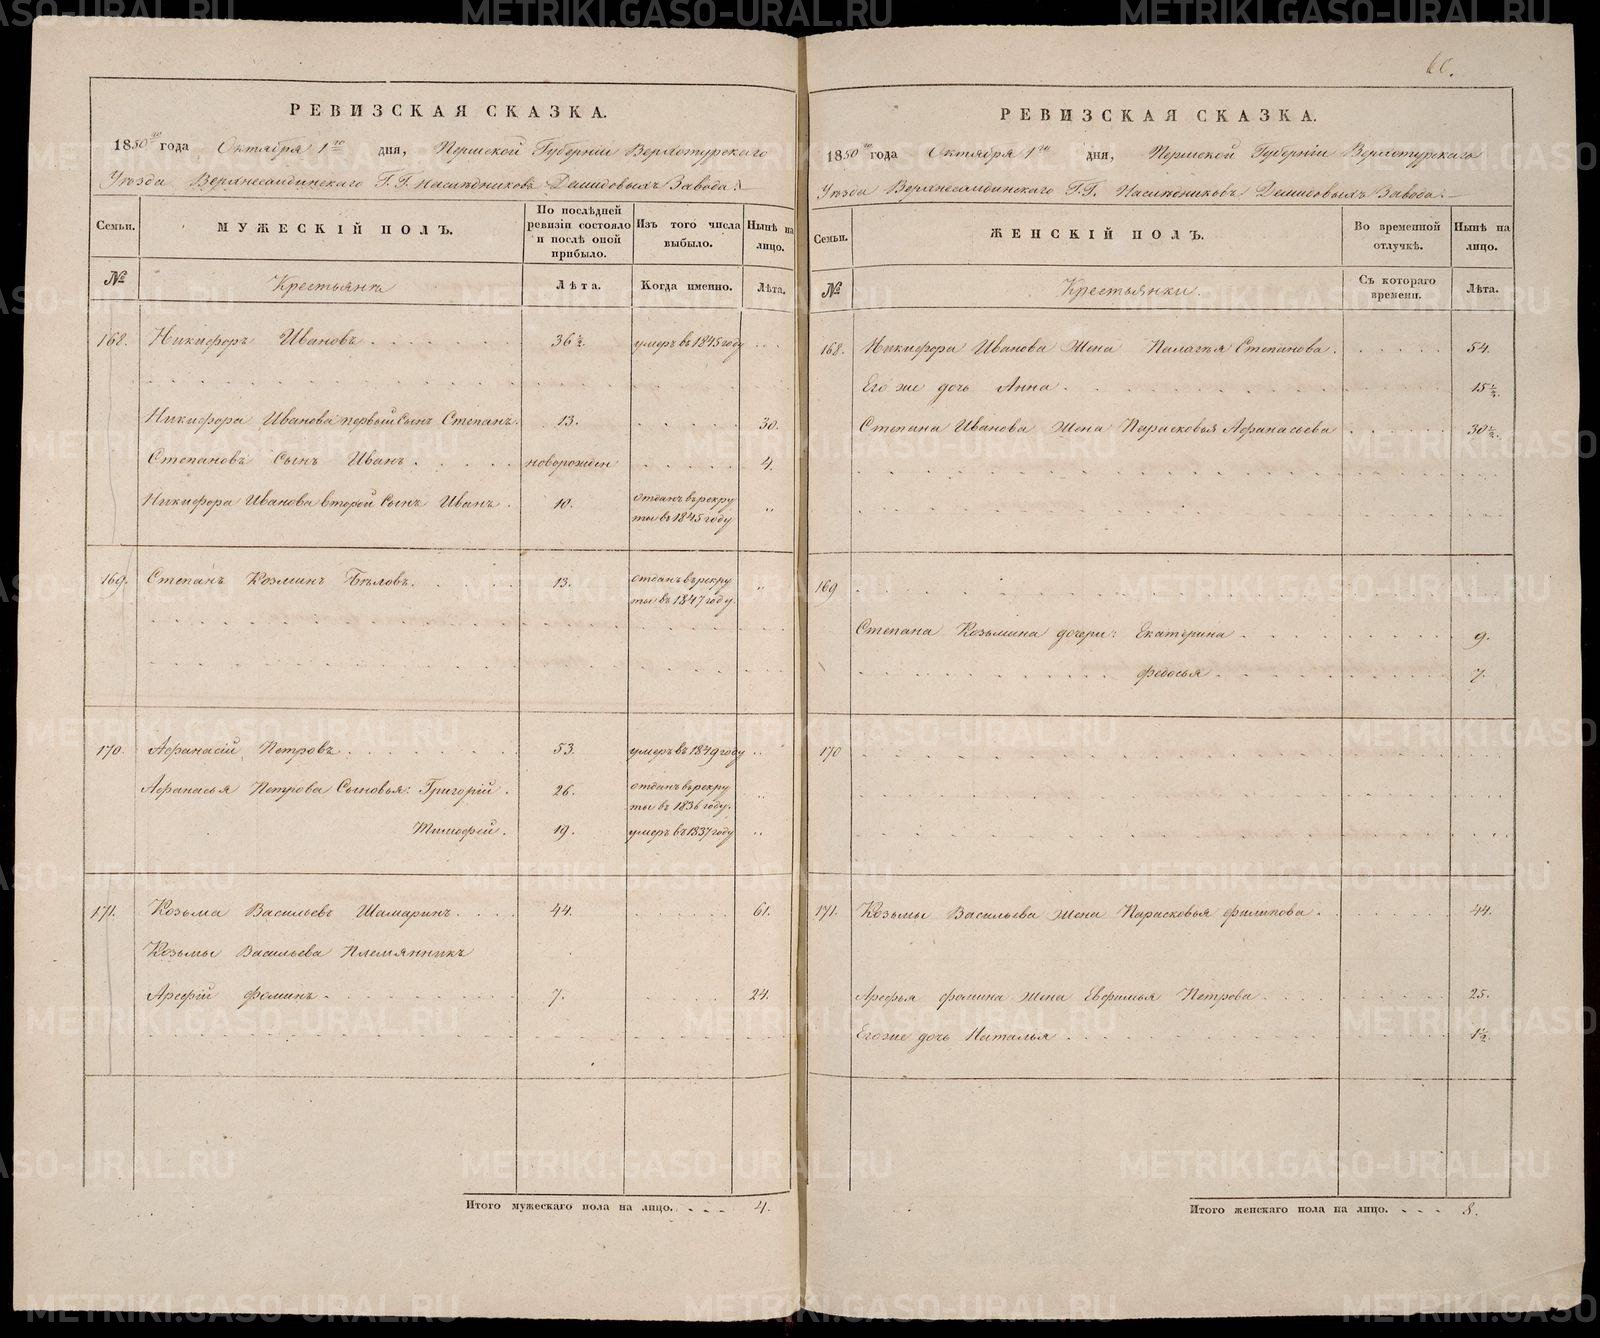 60.
РЕВИЗСКАЯ СКАЗКА.
1850го года Октября 1го дня, Пермской Губерніи Верхотурскаго
Уѣзда Верхнесалдинскаго Г.Г. Наслѣдниковъ Демидовыхъ Завода:
Семьи.
МУЖЕСКІЙ ПОЛЪ.
По послѣдней ревизіи состояло и послѣ оной прибыло.
Изъ того числа выбыло.
Нынѣ на лицо.
№
Крестьяне
Лѣта.
Когда именно.
Лѣта.
168. Никифоръ Ивановъ 36½. умеръ въ 1845 году
Никифора Иванова первый сынъ Степанъ. 13. 30.
Степановъ сынъ Иванъ. новорожден 4.
Никифора Иванова второй сынъ Иванъ. 10. отданъ въ рекру
ты въ 1845 году „
169. Степанъ Козминъ Бѣловъ. 13. отданъ въ рекру „
ты въ 1847 году.
170. Афанасій Петровъ 53. умеръ въ 1849 году „
Афанасья Петрова Сыновья: Григорій. 26. отданъ въ рекру „
ты въ 1836 году.
Тимофей. 19. умеръ въ 1837 году „
171. Козьма Васильевъ Шамаринъ. 44. 61.
Козьмы Васильева Племянникъ
Арефій Фоминъ. 7. 24.
Итого мужескаго пола на лицо. 4.
РЕВИЗСКАЯ СКАЗКА.
1850го года Октября 1го дня, Пермской Губерніи Верхотурскаго
Уѣзда Верхнесалдинскаго Г.Г. Наслѣдниковъ Демидовыхъ Завода:
Семьи.
ЖЕНСКІЙ ПОЛЪ.
Во временной отлучкѣ.
Нынѣ на лицо.
№
Крестьянки.
Съ котораго времени.
Лѣта.
168. Никифора Иванова Жена Палагья Степанова. 54.
Его же дочь Анна. 15½.
Степана Иванова Жена Парасковья Афанасьева 30½.
169
Степана Козьмина дочери: Екатерина 9.
Федосья 7.
170
171. Козьмы Васильева Жена Парасковья Филипова. 44.
Арефья Фомина Жена Евфимья Петрова 25.
Его же дочь Наталья 1½.
Итого женскаго пола на лицо. 8.
METRIKI.GASO-URAL.RU